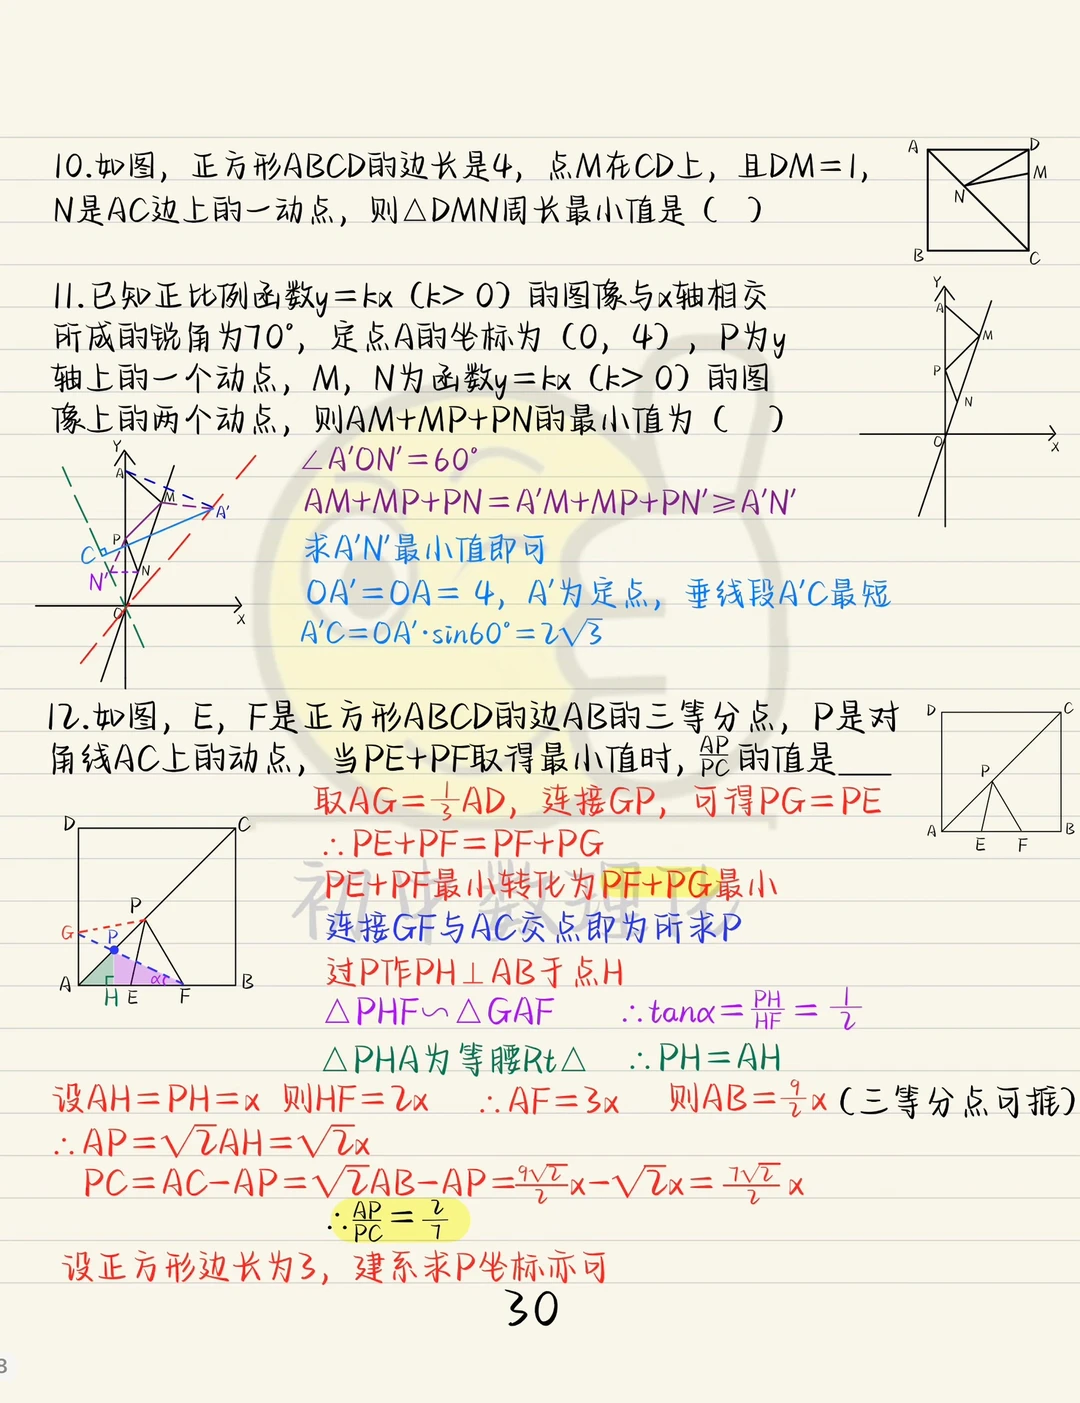 10.如图，正方形ABCD的边长是4，点M在CD上，且DM=1，
N是AC边上的一动点，则△DMN周长最小值是（ ）
A D M N B C
11.已知正比例函数y=kx（k>0）的图像与x轴相交
所成的锐角为70°，定点A的坐标为（0，4），P为y
轴上的一个动点，M，N为函数y=kx（k>0）的图
像上的两个动点，则AM+MP+PN的最小值为（ ）
Y A M P N O X
Y A M A' P C N' N O X
∠A'ON'=60°
AM+MP+PN=A'M+MP+PN'≥A'N'
求A'N'最小值即可
OA'=OA=4，A'为定点，垂线段A'C最短
A'C=OA'·sin60°=2√3
12.如图，E，F是正方形ABCD的边AB的三等分点，P是对
角线AC上的动点，当PE+PF取得最小值时，AP/PC的值是___
D C P A E F B
取AG=1/3AD，连接GP，可得PG=PE
∴PE+PF=PF+PG
PE+PF最小转化为PF+PG最小
连接GF与AC交点即为所求P
过P作PH⊥AB于点H
D C P G P A H E α F B
△PHF∽△GAF ∴tanα=PH/HF=1/2
△PHA为等腰Rt△ ∴PH=AH
设AH=PH=x 则HF=2x ∴AF=3x 则AB=9/2x（三等分点可推）
∴AP=√2AH=√2x
PC=AC-AP=√2AB-AP=9√2/2x-√2x=7√2/2x
∴AP/PC=2/7
设正方形边长为3，建系求P坐标亦可
30
初中数理化
8